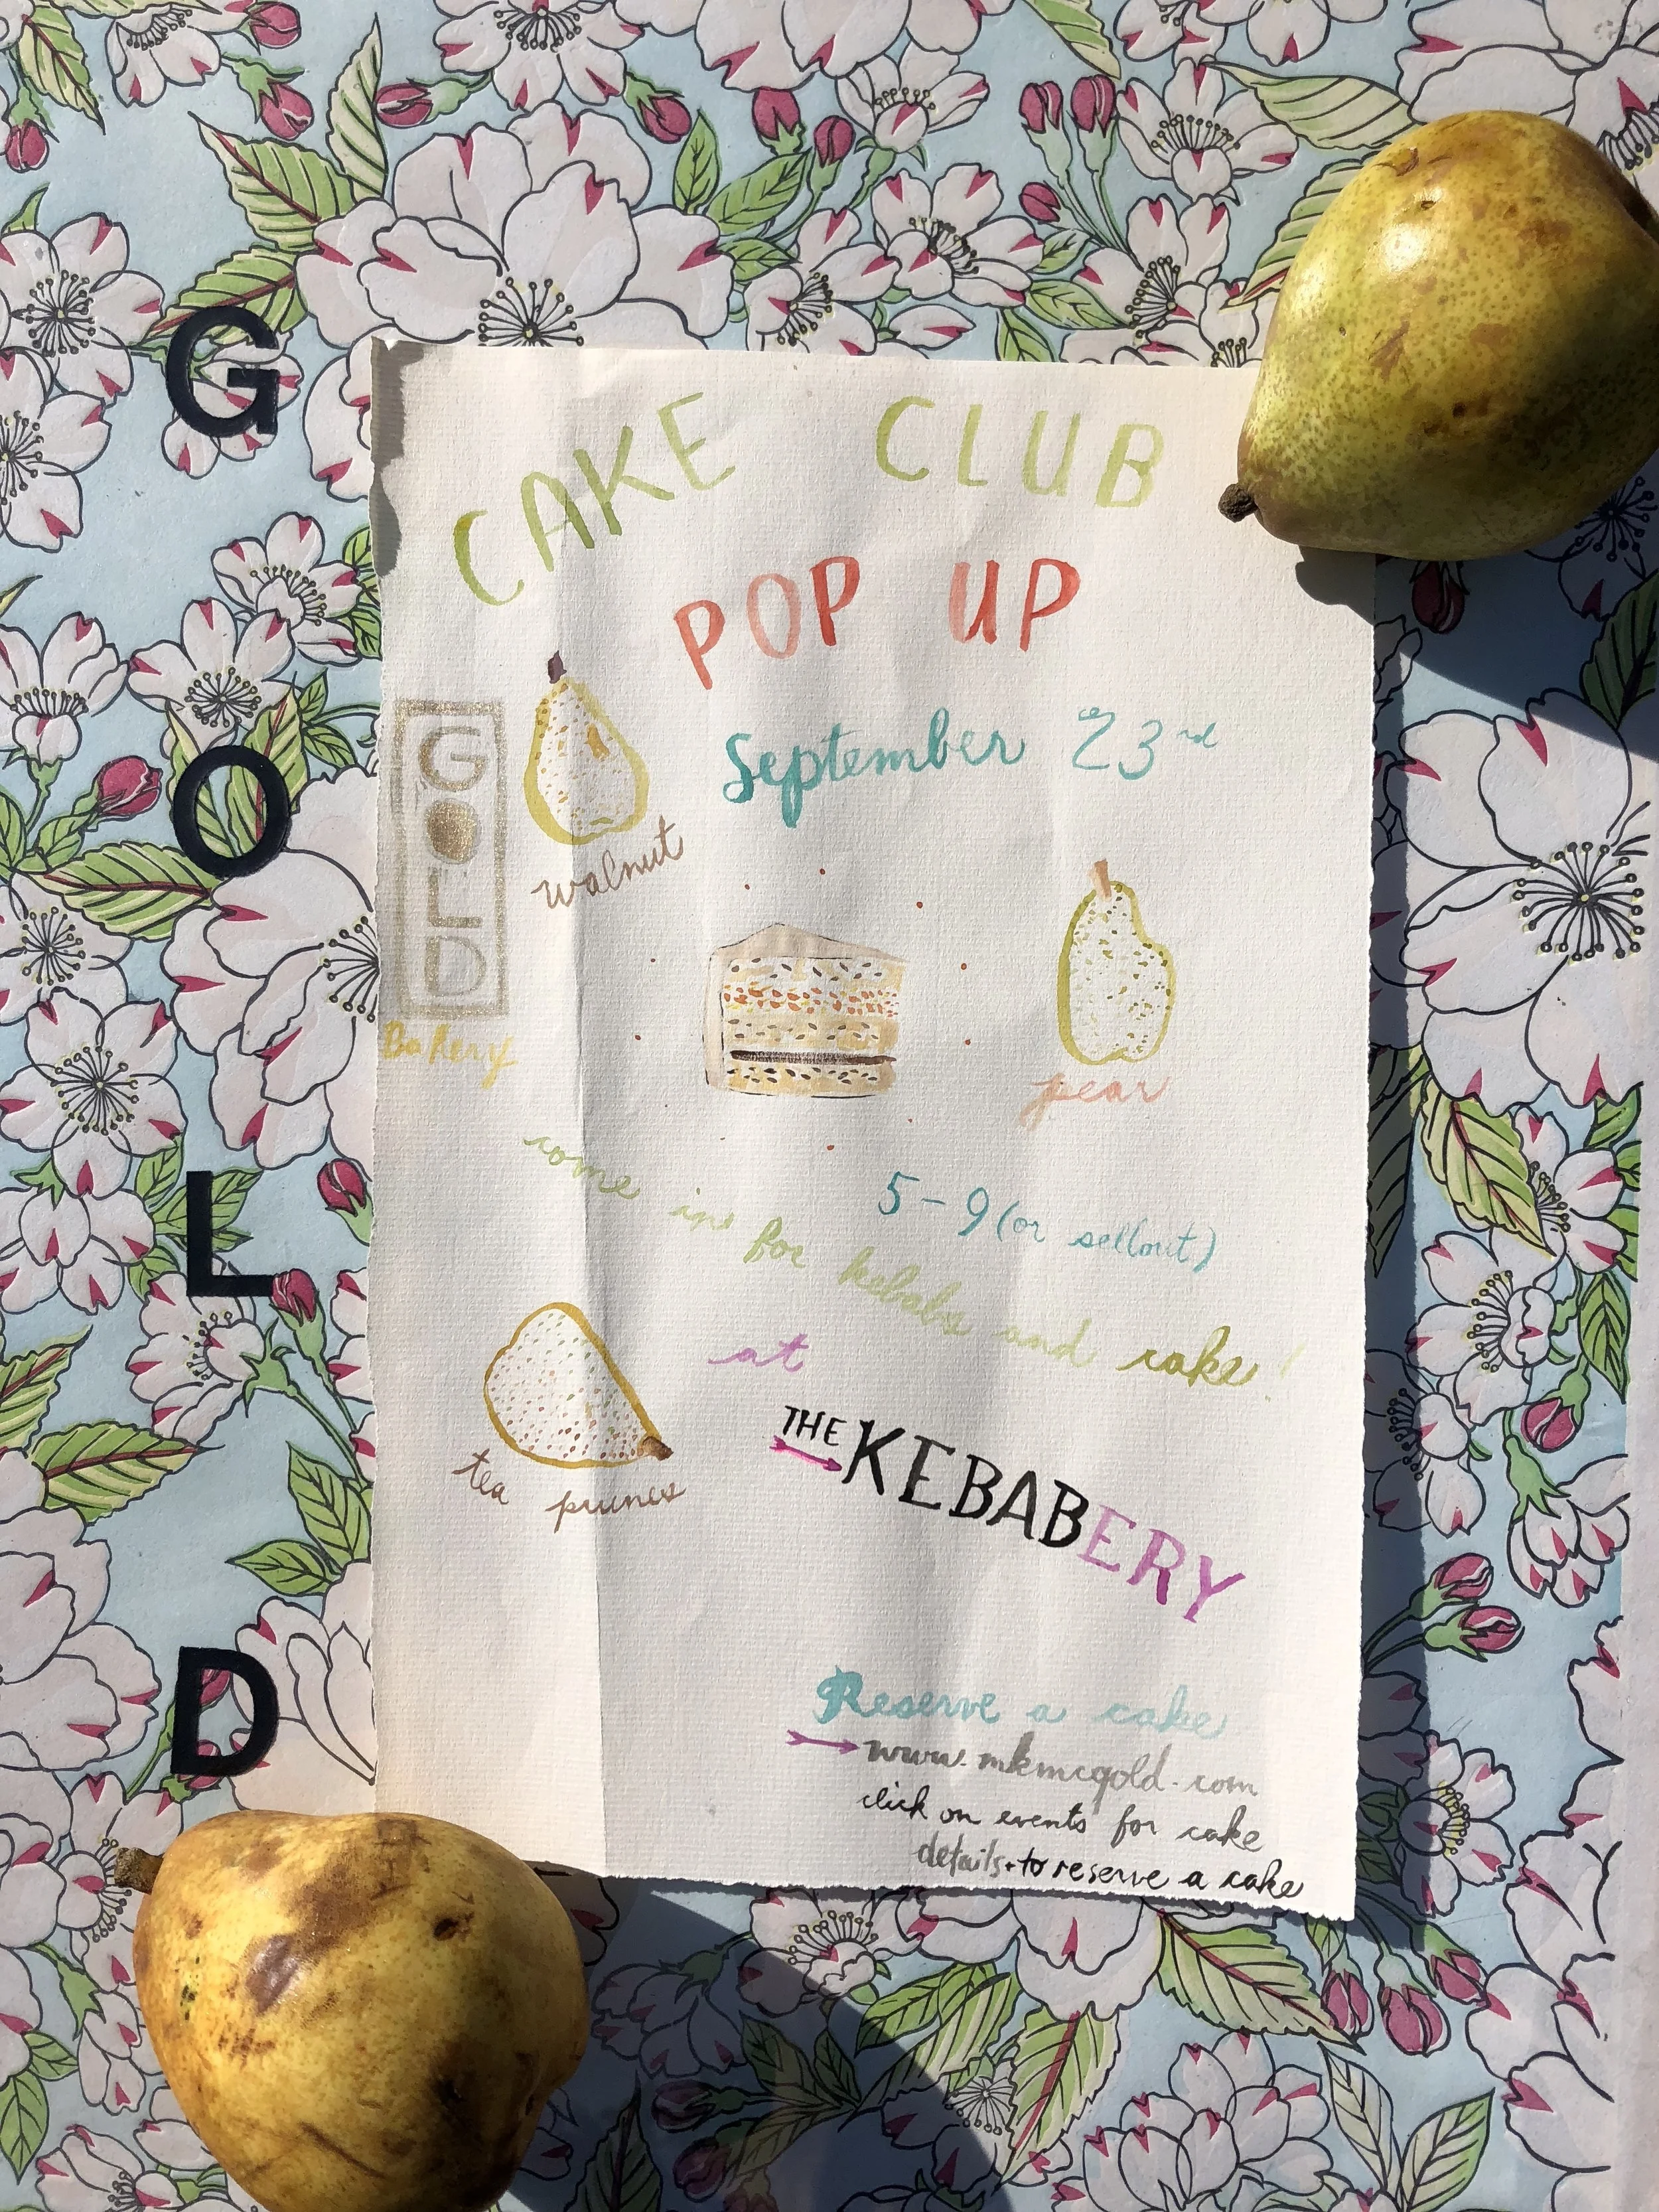 G
O
L
D
CAKE CLUB
POP UP
September 23rd
GOLD
Bakery
walnut
pear
5-9 (or sellout)
come in for kebabs and cake!
at
THE KEBABERY
tea prunes
Reserve a cake
www.mkmcgold.com
click on events for cake
details + to reserve a cake